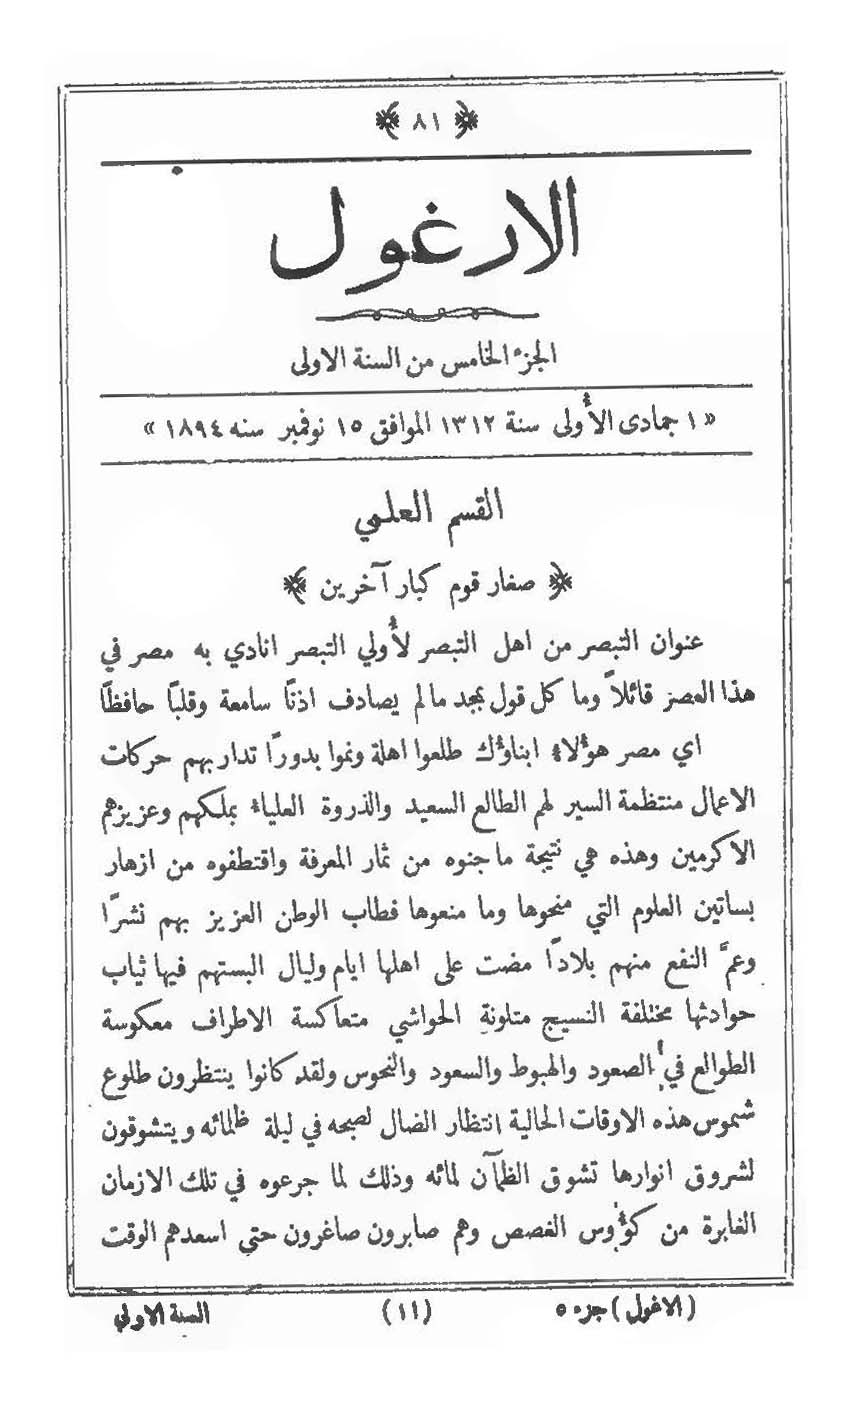 ٨١
الارغول
الجزء الخامس من السنة الاولى
« ١ جمادى الأولى سنة ١٣١٢ الموافق ١٥ نوفمبر سنه ١٨٩٤ »
القسم العلمي
صغار قوم كبار آخرين
عنوان التبصر من اهل التبصر لأولي التبصر انادي به مصر في
هذا العصر قائلاً وما كل قول بمجد مالم يصادف اذنًا سامعة وقلبًا حافظًا
اي مصر هؤلاء ابناؤك طلعوا اهلة ونموا بدورًا تدار بهم حركات
الاعمال منتظمة السير لهم الطالع السعيد والذروة العلياء بملكهم وعزيزهم
الاكرمين وهذه هي نتيجة ما جنوه من ثمار المعرفة واقتطفوه من ازهار
بساتين العلوم التي منحوها وما منعوها فطاب الوطن العزيز بهم نشرًا
وعمَّ النفع منهم بلادًا مضت على اهلها ايام وليال البستهم فيها ثياب
حوادثها مختلفة النسيج متلونة الحواشي متعاكسة الاطراف معكوسة
الطوالع في الصعود والهبوط والسعود والنحوس ولقد كانوا ينتظرون طلوع
شموس هذه الاوقات الحالية انتظار الضال لصبحه في ليلة ظلمائه ويتشوقون
لشروق انوارها تشوق الظمآن لمائه وذلك لما جرعوه في تلك الازمان
الغابرة من كؤوس الغصص وهم صابرون صاغرون حتي اسعدهم الوقت
( الاغول ) جزء ٥ (١١) السنة الاولي